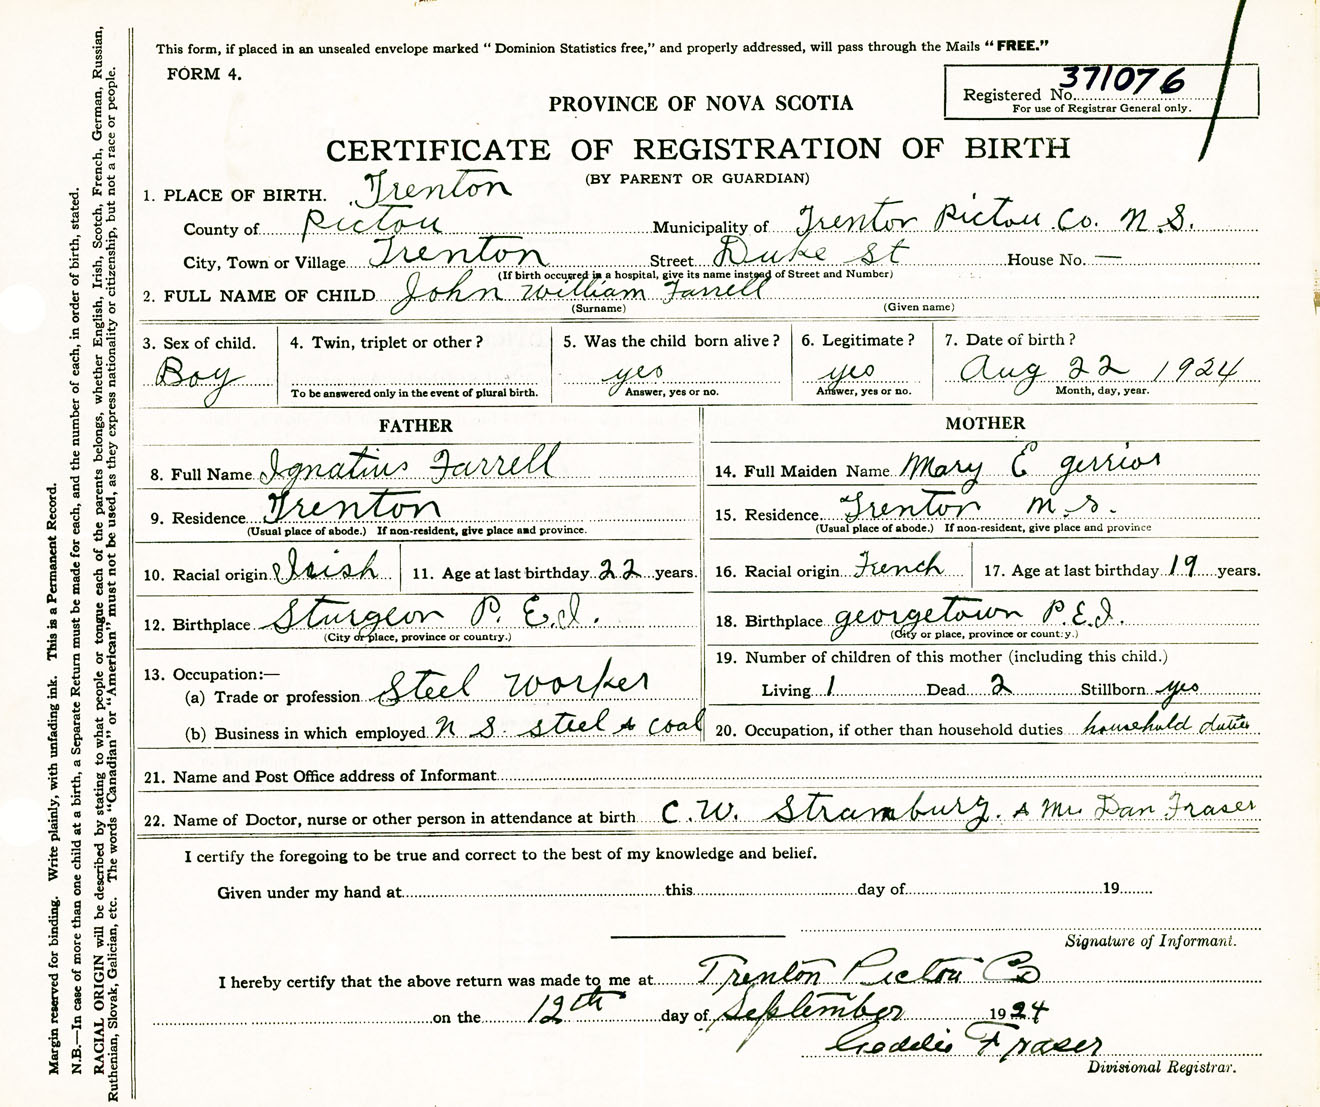 This form, if placed in an unsealed envelope marked " Dominion Statistics free," and properly addressed, will pass through the Mails " FREE."
FORM 4.
Registered No. 371076
For use of Registrar General only.
PROVINCE OF NOVA SCOTIA
CERTIFICATE OF REGISTRATION OF BIRTH
(BY PARENT OR GUARDIAN)
1. PLACE OF BIRTH. Trenton
County of Pictou Municipality of Trenton Pictou Co. N.S.
City, Town or Village Trenton Street Duke St House No. —
(If birth occurred in a hospital, give its name instead of Street and Number)
2. FULL NAME OF CHILD John William Farrell
(Surname) (Given name)
3. Sex of child. 4. Twin, triplet or other ? 5. Was the child born alive ? 6. Legitimate ? 7. Date of birth ?
Boy yes yes Aug 22 1924
To be answered only in the event of plural birth. Answer, yes or no. Answer, yes or no. Month, day, year.
FATHER
8. Full Name Ignatius Farrell
9. Residence Trenton
(Usual place of abode.) If non-resident, give place and province.
10. Racial origin Irish 11. Age at last birthday 22 years.
12. Birthplace Sturgeon P. E.I.
(City or place, province or country.)
13. Occupation:—
(a) Trade or profession Steel Worker
(b) Business in which employed N S. Steel & Coal
MOTHER
14. Full Maiden Name Mary E gerrior
15. Residence Trenton N.S.
(Usual place of abode.) If non-resident, give place and province
16. Racial origin French 17. Age at last birthday 19 years.
18. Birthplace georgetown P.E.I.
(City or place, province or country.)
19. Number of children of this mother (including this child.)
Living 1 Dead 2 Stillborn yes
20. Occupation, if other than household duties household duties
21. Name and Post Office address of Informant
22. Name of Doctor, nurse or other person in attendance at birth C. W. Stramburg. & Mrs Dan Fraser
I certify the foregoing to be true and correct to the best of my knowledge and belief.
Given under my hand at this day of 19
Signature of Informant.
I hereby certify that the above return was made to me at Trenton Pictou Co
on the 12th day of September 1924
Fraser
Divisional Registrar.
Margin reserved for binding. Write plainly, with unfading ink. This is a Permanent Record.
N.B.—In case of more than one child at a birth, a Separate Return must be made for each, and the number of each, in order of birth, stated.
RACIAL ORIGIN will be described by stating to what people or tongue each of the parents belongs, whether English, Irish, Scotch, French, German, Russian,
Ruthenian, Slovak, Galician, etc. The words "Canadian" or "American" must not be used, as they express nationality or citizenship, but not a race or people.